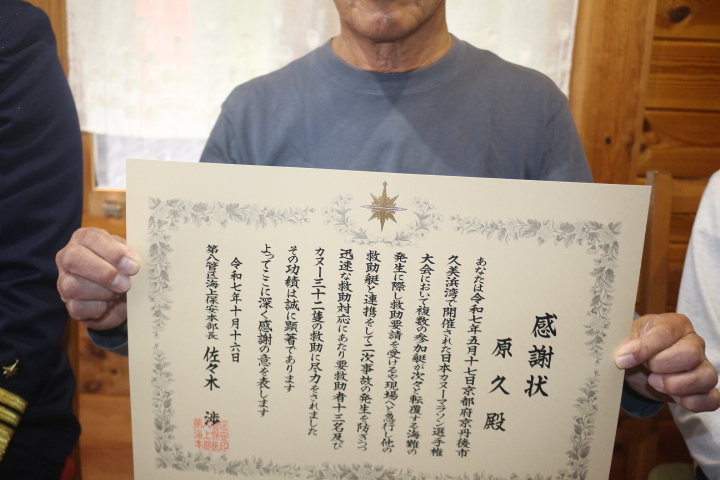 感謝状
原久殿
あなたは令和七年五月十七日京都府京丹後市
久美浜湾で開催された日本カヌーマラソン選手権
大会において複数の参加艇が次々と転覆する海難の
発生に際し救助要請を受けるや現場へと急行し他の
救助艇と連携をして二次事故の発生を防ぎつつ
迅速な救助対応にあたり要救助者十三名及び
カヌー三十二隻の救助に尽力をされました
その功績は誠に顕著であります
よってここに深く感謝の意を表します
令和七年十月十六日
第八管区海上保安本部長 佐々木 渉